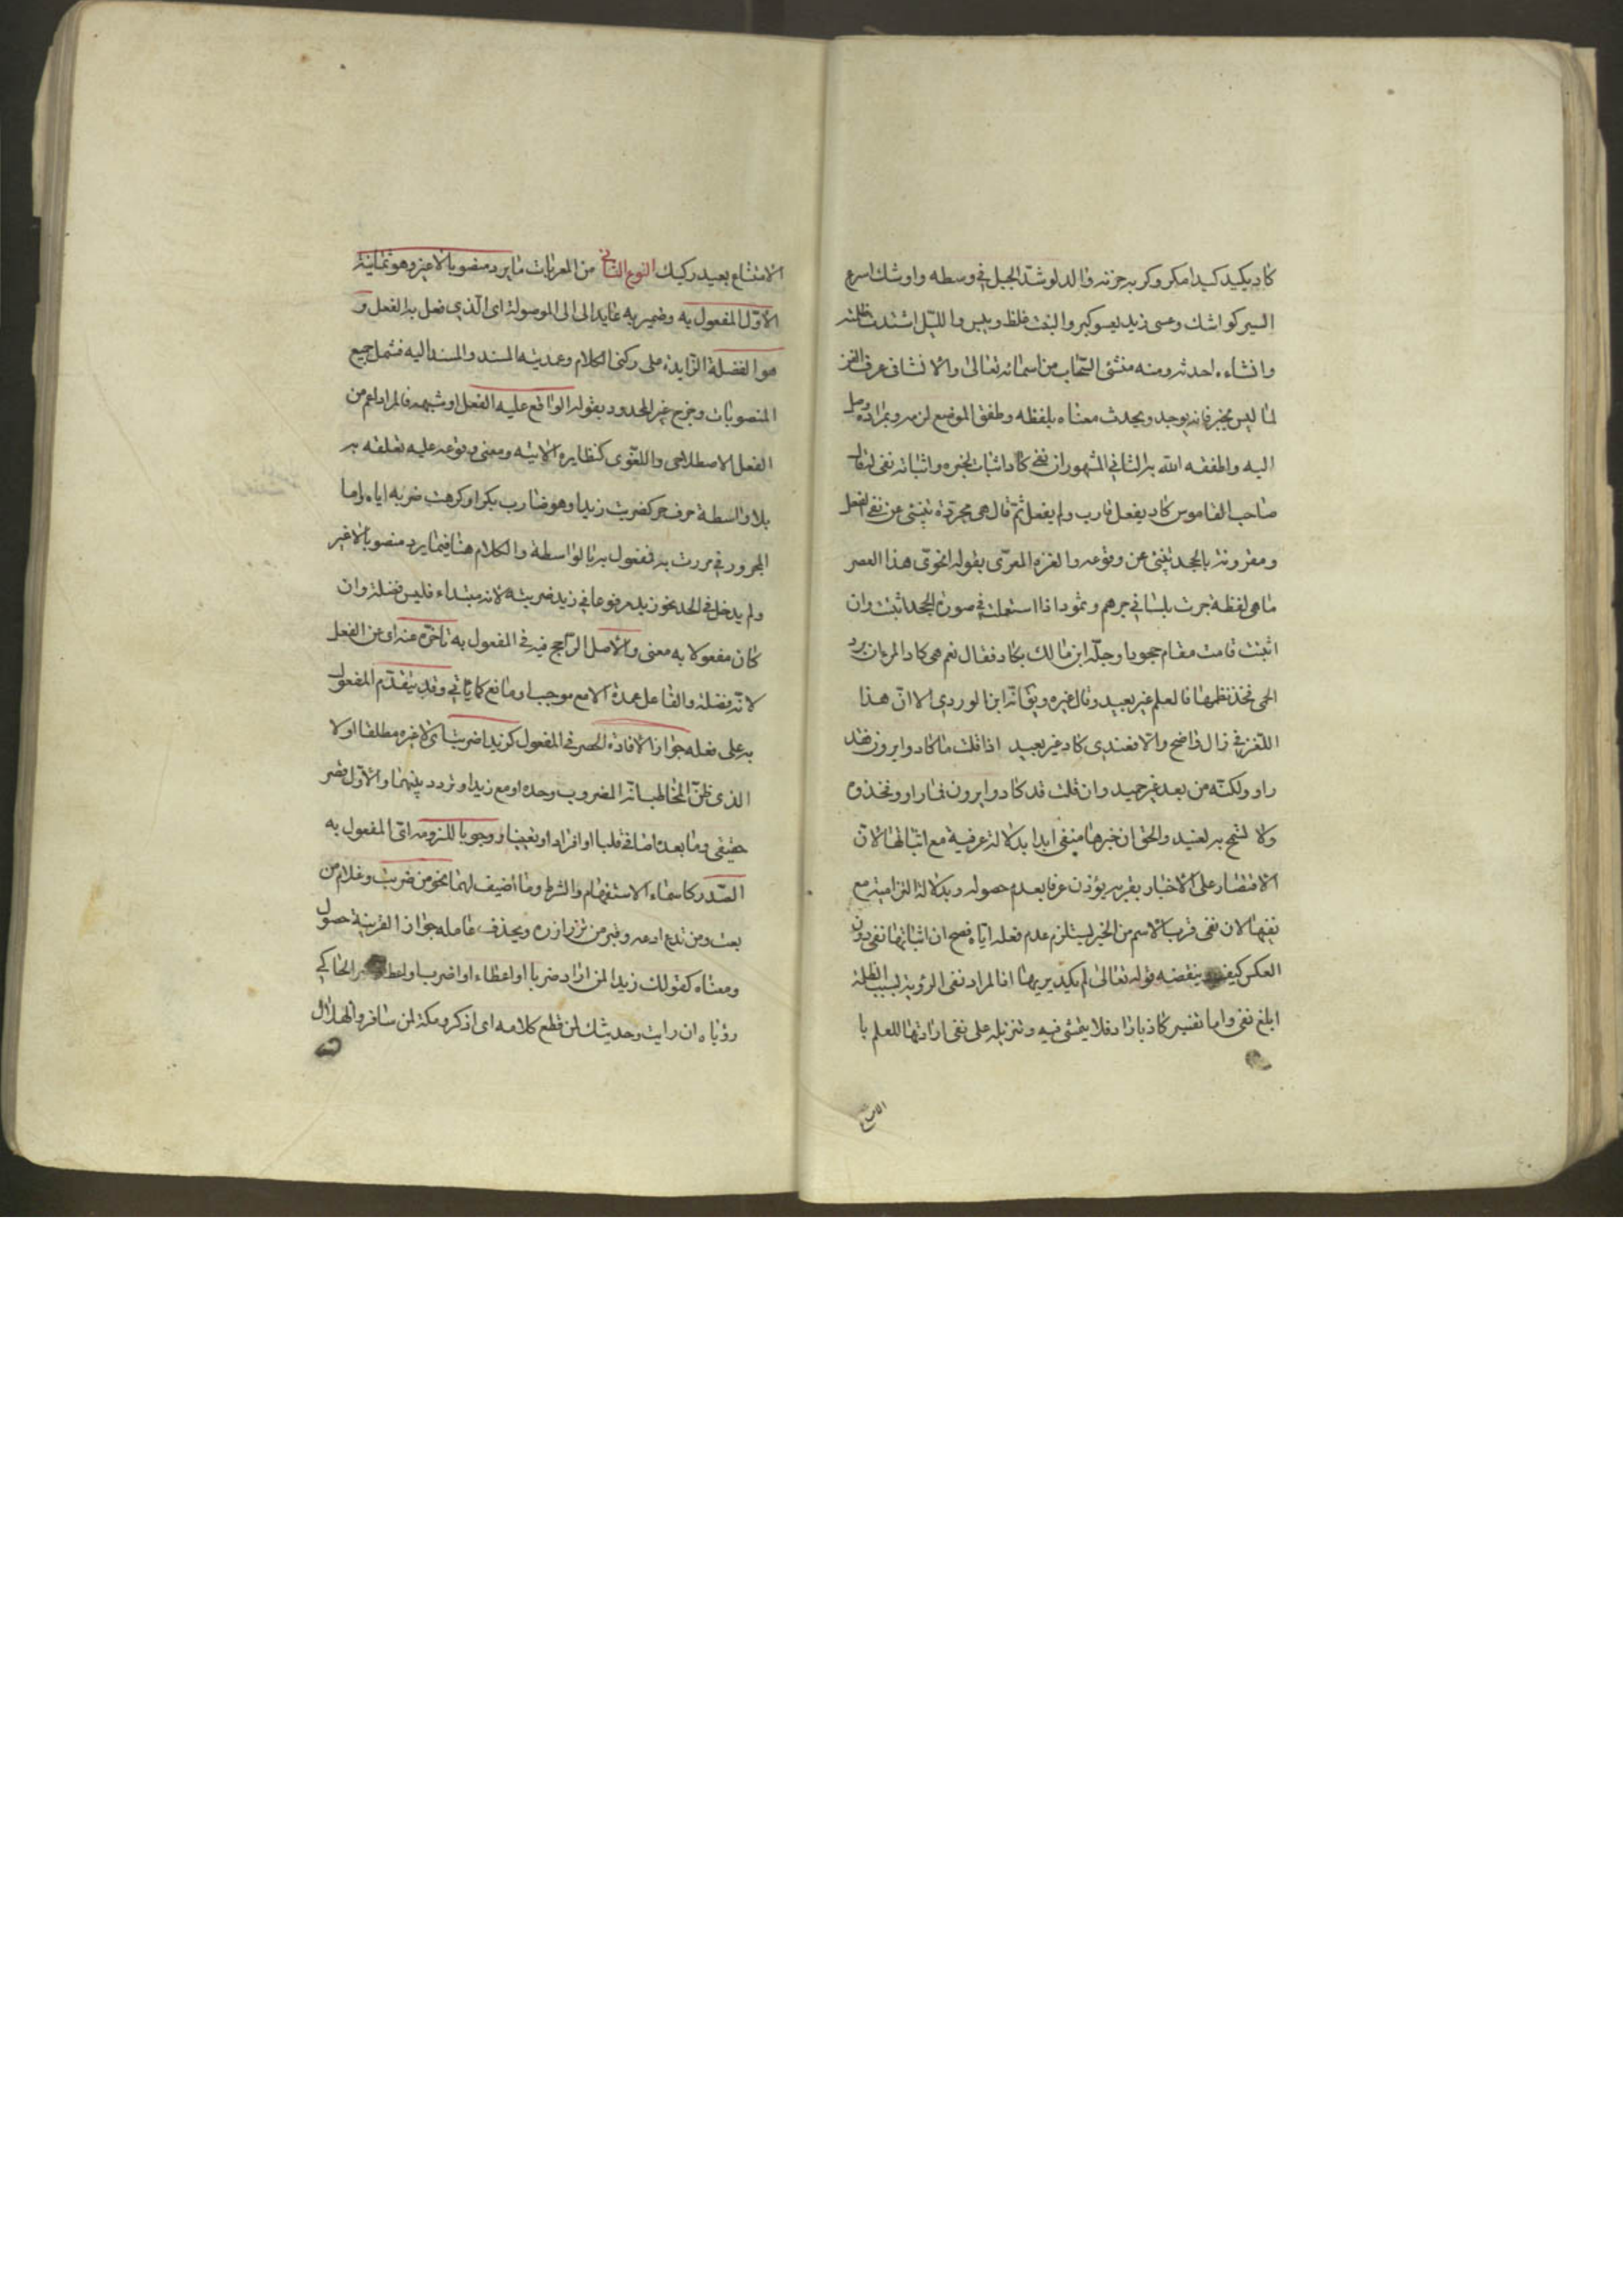 كاد يكيد كيدا مكر وكربه حزنه والدلو شدّ الحبل في وسطه واوشك اسرع
السير كواشك وعسى زيد يعسو كبر والنبت غلظ ويبس والليل اشتدت ظلمته
وانشاءه احدثه ومنه منشئ السّحاب من اسمائه تعالى والانشاء في عرف
لما ليس بخبر فانه يوجد ويحدث معناه بلفظه وطفق الموضع لزمه وبمراده وصل
اليه واطفقه الله به الثاني المشهور ان نفي كاد اثبات لخبره واثباته نفي لقال
صاحب القاموس كاد يفعل قارب ولم يفعل ثمّ قال هي مجرّدة تنبئ عن نفي الفعل
ومقرونة بالجحد تنبئ عن وقوعه والغزه المعرّى بقوله انحوىّ هذا العصر
ما هى لفظة جرت بلسانى جرهم وثمود اذا استعملت في صورة الجحد اثبتت وان
اثبتت قامت مقام جحود وحلّه ابن مالك بكاد فقال نعم هى كاد المرء ان يرد
الحمى فخذ نظمها فالعلم غير بعيد وقال غيره ابن الوردي الا انّ هذا
اللّغز في زال واضح والا فعندى كاد غير بعيد اذا قلت ما كادوا يرون فقد
راوه ولكنّه من بعد غير حميد وان قلت قد كادوا يرون فما راوه فخذه
ولا تسمح به لعنيد والحق ان خبرها منفى ابدا بدلالة عرفية مع اثباتها لانّ
الاقتصار على الاخبار بقربه يؤذن عرفا بعدم حصوله وبدلالة التزامية مع
نفيها لان نفى قرب الاسم من الخبر يستلزم عدم فعله اياه فصح ان اثباتها نفى دون
العكس كيف ينقضه قوله تعالى لم يكد يريها اذ المراد نفى الرؤية بسبب الظلمة
ابلغ نفى واما تفسير كاد باراد فلا يتمشى فيه وتنزيله على نفى ارادتها للعلم با
الامتناع بعيد ركيك النوع الثاني من المعربات ما يرد منصوبا لا غير وهو ثمانية
الاوّل المفعول به وضمير به عايد الى ال الموصولة اى الّذي فعل به الفعل و
هو الفضلة الزّايدة على ركنى الكلام وعمدتيه المسند والمسند اليه فشمل جميع
المنصوبات وخرج غير المحدود بقوله الواقع عليه الفعل او شبهه فالمراد اعم من
الفعل الاصطلاحى واللغوّى كنظايره الاتية ومعنى وقوعه عليه تعلقه به
بلا واسطة حرف جر كضربت زيدا وهو ضارب بكرا وكرهت ضربه اياه واما
المجرور في مررت به فمفعول به بالواسطة والكلام هنا فيما يرد منصوبا لا غير
ولم يدخل في الحد نحو زيد مرفوعا في زيد ضربته لانه مبتداء فليس فضلة وان
كان مفعولا به معنى والاصل الرّاجح فيه في المفعول به تأخّره عنه اى عن الفعل
لانّه فضلة والفاعل عمدة الا مع موجب او مانع كما ياتي وقد يتقدّم المفعول
به على فعله جوازا لافادة الحصر في المفعول كزيدا ضربت اى لا غيره مطلقا او لا
الذى ظنّ المخاطب انّه المضروب وحده او مع زيد او تردد بينهما والاوّل قصر
حقيقى وما بعده اضافى قلبا او افرادا او تعيينا ووجوبا للزومه اى المفعول به
الصّدر كاسماء الاستفهام والشرط وما اضيف لهما نحو من ضربت وغلام من
بعت ومن تدع ادعه وقبر من تزر ازره ويحذف عامله جوازا لقرينة حصول
ومعناه كقولك زيدا لمن اراد ضربا او اعطاء او اضرب او اعط
رؤياه ان رايت وحديثك لمن قطع كلامه اى اذكر ومكة لمن سافر والهلال